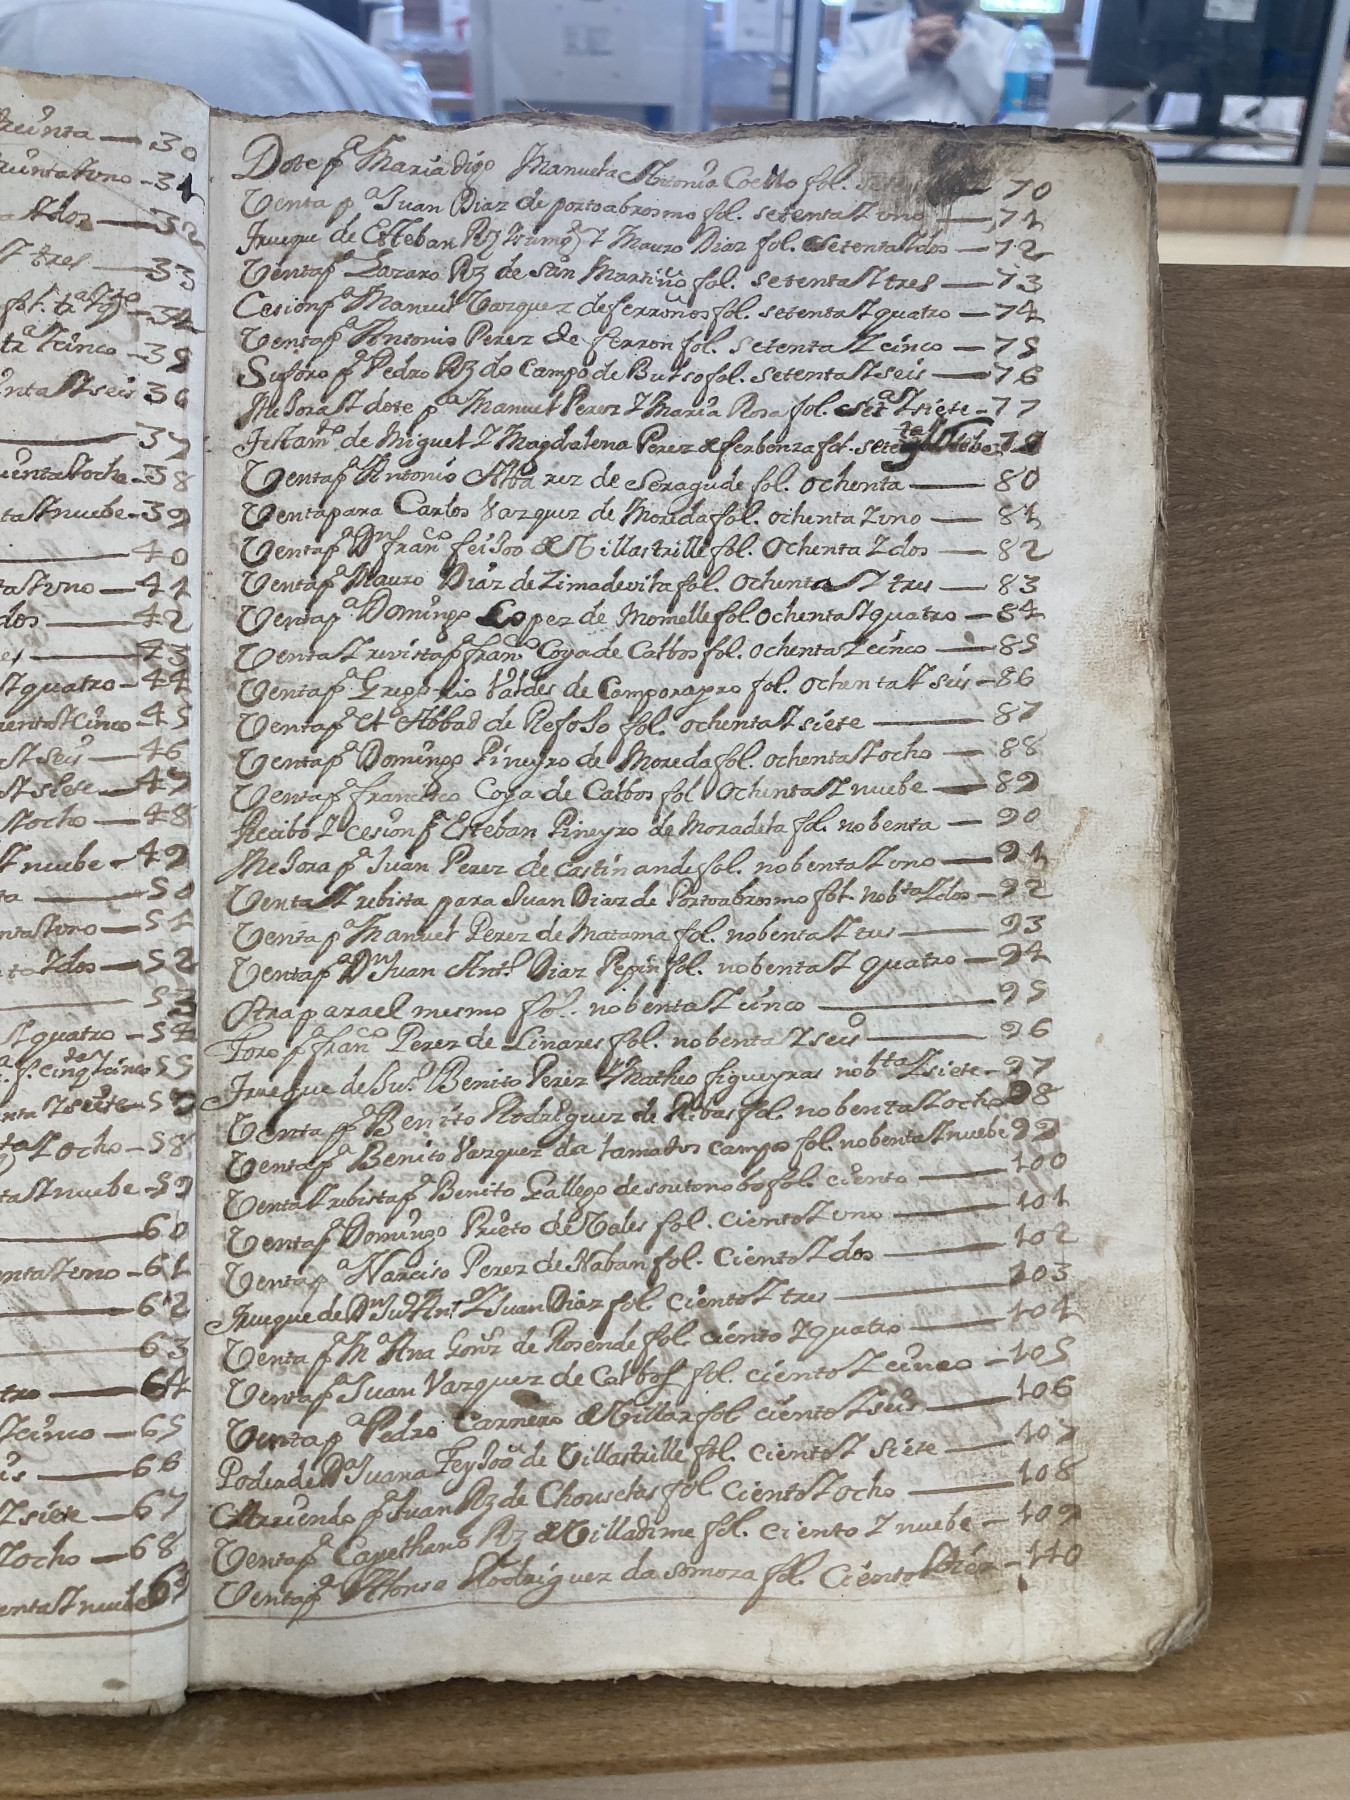 treinta — 30
treintaYuno - 31
aYdos — 32
Y tres — 33
34
tᵃYcinco - 35
intaYseis 36
37
uentaYocho - 38
taYnuebe - 39
40
taYuno — 41
dos — 42
43
Yquatro - 44
uentaYcinco - 45
aYseis — 46
Ysiete — 47
Yocho — 48
Ynuebe - 49
ta — 50
ntaYuno — 51
ta Ydos — 52
53
Yquatro - 54
cinqᵗᵃYcinco 55
Yocho - 58
taYnuebe - 59
60
entaYuno - 61
62
63
tro — 64
Ycinco — 65
is — 66
Ysiete — 67
Yocho — 68
entaYnuebe 69
Dote pᵃ Maria digo Manuela Antonia Coello fol. — 70
Venta pᵃ Juan Diaz de portoabrosmo fol. setentaYuno — 71
Trueque de Esteban Rz Y Mauro Diaz fol. setentaYdos — 72
Ventapᵃ Lazaro Rz de san Martiño fol. setentaYtres — 73
Cesionpᵃ Manuel Vazquez deferroños fol. setentaYquatro — 74
Ventapᵃ Antonio Perez de ferron fol. setentaYcinco — 75
Suforo pᵃ Pedro Rz do Campo de Butso fol. setentaYseis — 76
MejoraYdote pᵃ Manuel Perez Y Maria Rosa fol. setᵗᵃYsiete - 77
Testamᵗᵒ de Miguel Y Magdalena Perez de ferbenza fol.
Ventapᵃ Antonio Albarez de Seragude fol. ochenta — 80
Ventapara Carlos Vazquez de Moreda fol. ochentaYuno — 81
Ventapᵃ Dⁿ franᶜᵒ feijoo de Villastrille fol. ochentaYdos — 82
Ventapᵃ Mauro Diaz de Zimadevila fol. ochentaYtres — 83
Ventapᵃ Domingo Lopez de Momelle fol. ochentaYquatro — 84
VentaYrevistapᵃ franᶜᵒ Coya de Calbos fol. ochentaYcinco — 85
Ventapᵃ Gregorio Valdes de Camporapro fol. ochentaYseis - 86
Ventapᵃ el Abbad de Refojo fol. ochentaYsiete — 87
Ventapᵃ Domingo Pineyro de Moreda fol. ochentaYocho — 88
Ventapᵃ francisco Coya de Calbos fol ochentaYnuebe — 89
Recibo Y cesion pᵃ Esteban Pineyro de Moradela fol. nobenta — 90
Mejora pᵃ Juan Perez de castinande fol. nobentaYuno — 91
VentaYrebista para Juan Diaz de Portoabrosmo fol. nobᵗᵃYdos — 92
Venta pᵃ Manuel Perez de Matama fol. nobentaYtres — 93
Ventapᵃ Dⁿ Juan Antᵒ Diaz Pepin fol. nobentaY quatro — 94
Otra para el mesmo fol. nobentaYcinco — 95
Foro pᵃ franᶜᵒ Perez de Linares fol. nobentaYseis — 96
Trueque de Juᵒ Benito Perez Y Matheo figueyras nobᵗᵃYsiete - 97
Venta pᵃ Benito Rodriguez de Ribas fol. nobentaYocho 98
Ventapᵃ Benito Vazquez da tamados campo fol. nobentaYnuebe 99
VentaYrebistapᵃ Benito Gallego de soutonobo fol. ciento — 100
Ventapᵃ Domingo Prieto de Vales fol. cientoYuno — 101
Venta pᵃ Narciso Perez de Naban fol. cientoYdos — 102
Trueque de Dⁿ Juᵒ Antᵒ Y Juan Diaz fol. cientoYtres — 103
Venta pᵃ Mᵃ Ana Gonz de Rosende fol. cientoYquatro — 104
Ventapᵃ Juan Vazquez de Calbos fol. cientoYcinco - 105
Ventapᵃ Pedro Carnero de Villar fol cientoYseis — 106
Poder de Dᵃ Juana Feyjoó de Villastrille fol. cientoY siete — 107
Arriendo pᵃ Juan Rz de Chouselas fol cientoYocho — 108
Ventapᵃ Cayethano Rz de Villadime fol. ciento Y nuebe — 109
Ventapᵃ Alonso Rodriguez da somoza fol. ciento Ydiez - 110